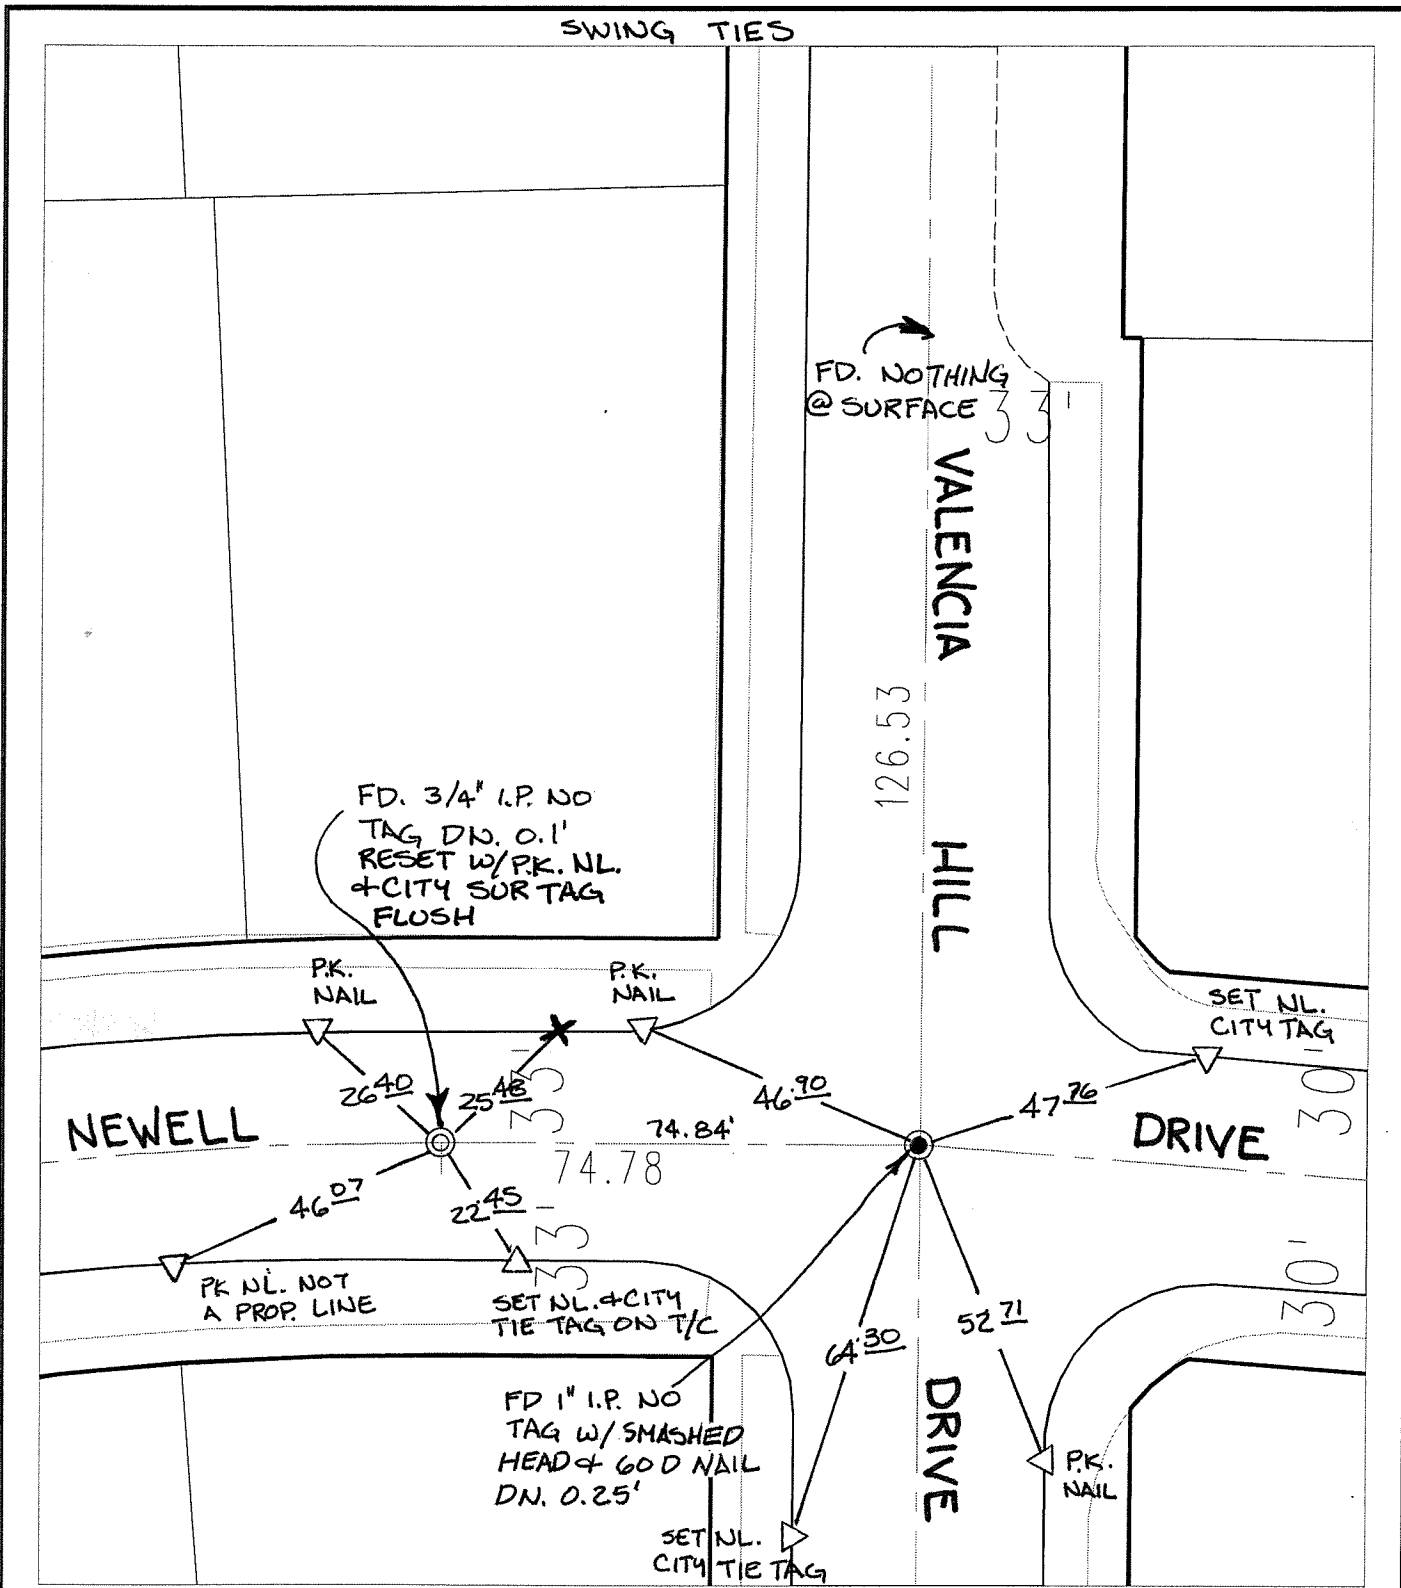 SWING TIES
FD. NOTHING
@ SURFACE
33'
VALENCIA
126.53
HILL
FD. 3/4" I.P. NO
TAG DN. 0.1'
RESET W/P.K. NL.
& CITY SUR TAG
FLUSH
P.K.
NAIL
P.K.
NAIL
SET NL.
CITY TAG
26.40
25.48
33'
46.90
47.76
30'
NEWELL
74.84'
DRIVE
74.78
46.07
22.45
33'
30'
PK NL. NOT
A PROP. LINE
SET NL. & CITY
TIE TAG ON T/C
64.30
52.71
FD 1" I.P. NO
TAG W/ SMASHED
HEAD & 60 D NAIL
DN. 0.25'
DRIVE
P.K.
NAIL
SET NL.
CITY TIE TAG